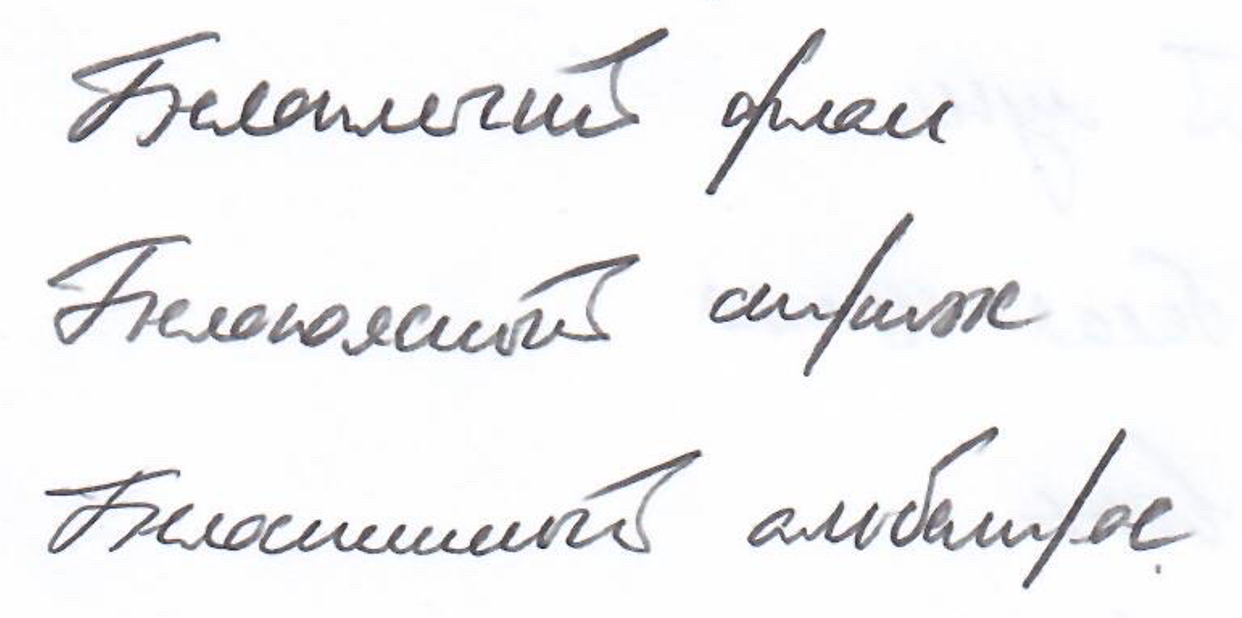 Белоплечий орлан
Белопоясный стриж
Белоспинный альбатрос